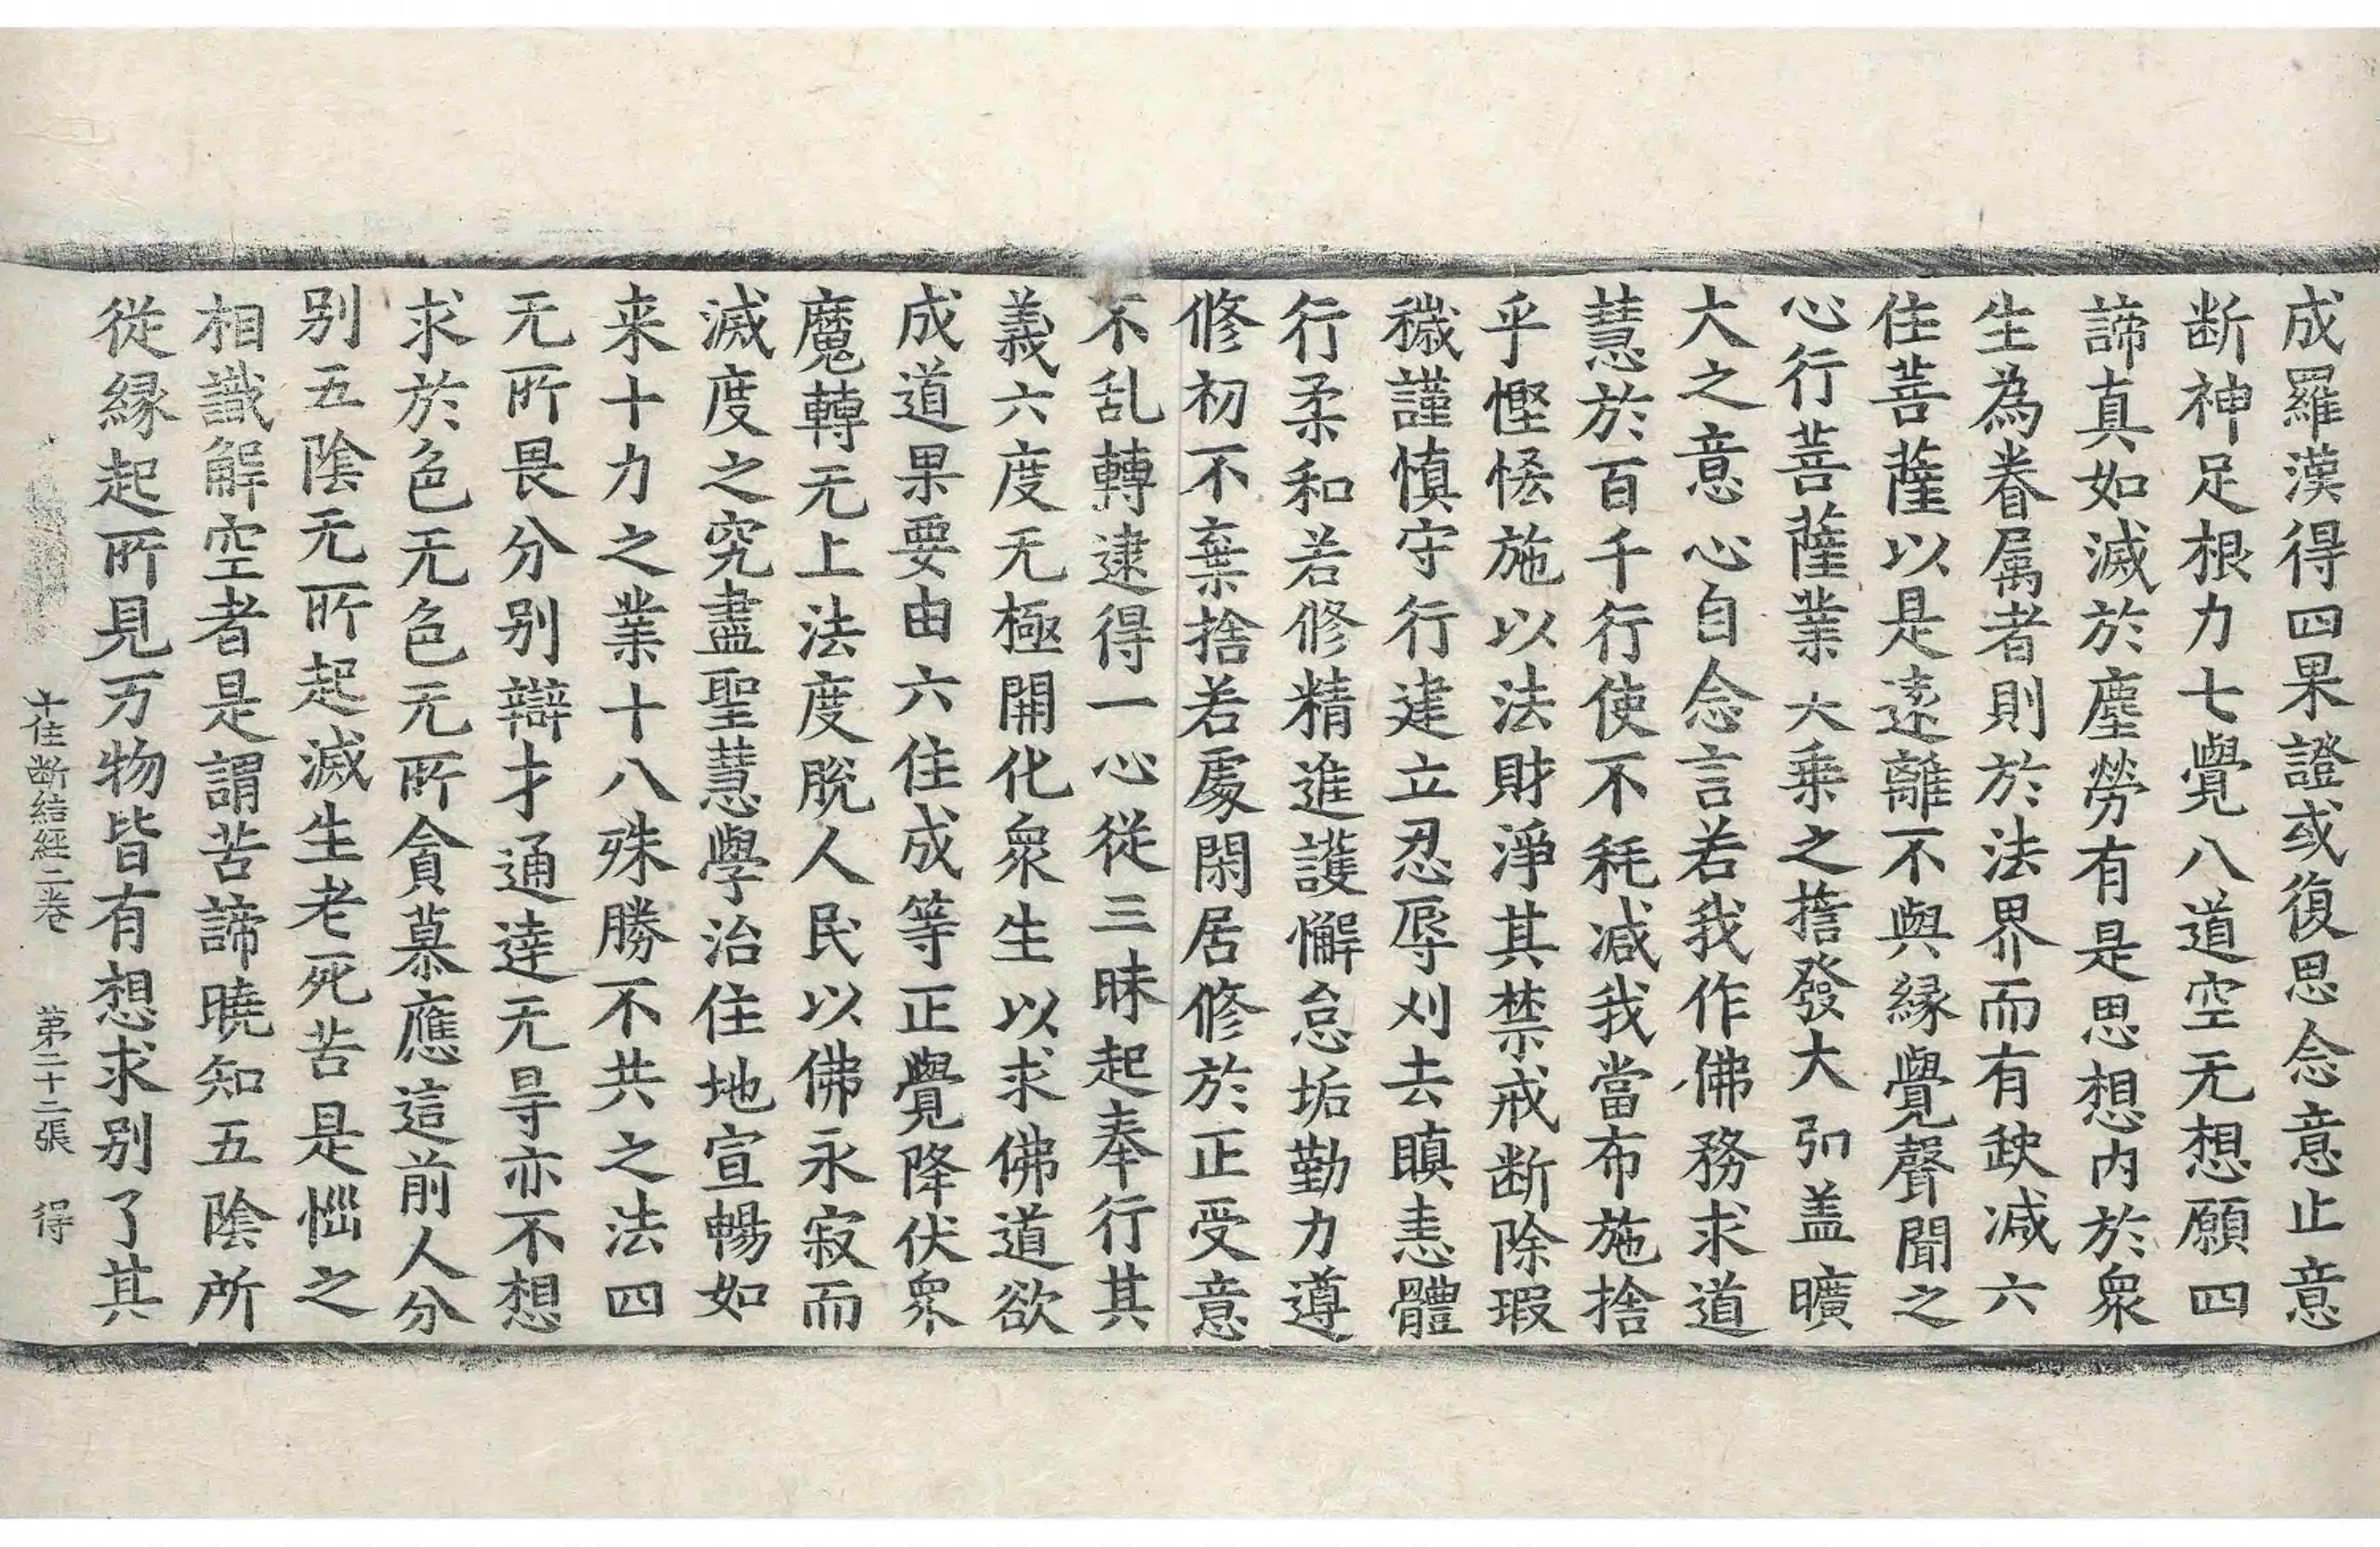 成羅漢得四果證或復思念意止意
断神足根力七覺八道空无想願四
諦真如滅於塵勞有是思想内於衆
生為眷属者則於法界而有缺减六
住菩薩以是逺離不與縁覺聲聞之
心行菩薩業大乗之擔發大弘盖曠
大之意心自念言若我作佛務求道
慧於百千行使不耗减我當布施捨
乎慳悋施以法財淨其禁戒断除瑕
穢謹慎守行建立忍辱刈去瞋恚體
行柔和若修精進護懈怠垢勤力遵
修初不棄捨若處閑居修於正受意
不乱轉逮得一心從三昧起奉行其
義六度无極開化衆生以求佛道欲
成道果要由六住成等正覺降伏衆
魔轉无上法度脫人民以佛永寂而
滅度之究盡聖慧學治住地宣暢如
来十力之業十八殊勝不共之法四
无所畏分别辯才通達无㝵亦不想
求於色无色无所貪慕應這前人分
别五陰无所起滅生老死苦是惱之
相識解空者是謂苦諦曉知五陰所
從縁起所見万物皆有想求别了其
十住断結經二卷 第二十二張 得